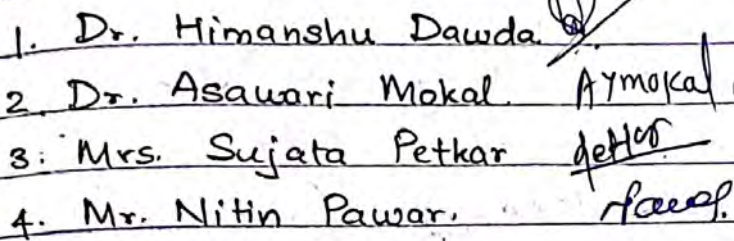 1. Dr. Himanshu Dawda.
2. Dr. Asawari Mokal. AYmokal
3: Mrs. Sujata Petkar
4. Mr. Nitin Pawar.